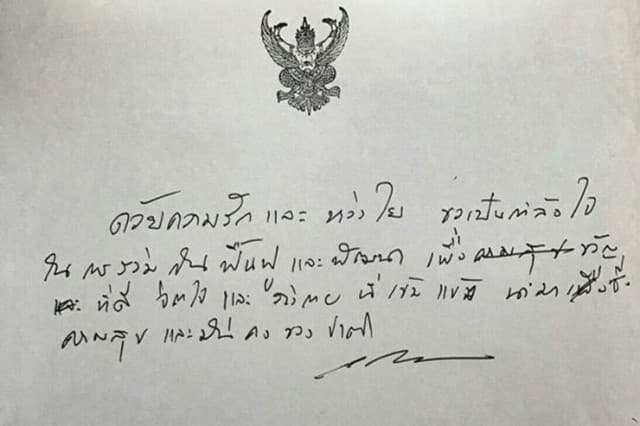 ด้วยความรัก และ ห่วงใย ขอเป็นกำลังใจ
ใน การร่วมกัน ฟื้นฟู และ พัฒนา เพื่อ ความสุข ขวัญ
และ ที่ดี จิตใจ และ ร่างกาย ที่ เข้มแข็ง นำมาซึ่ง
ความสุข และมั่นคง ของ ชาติ